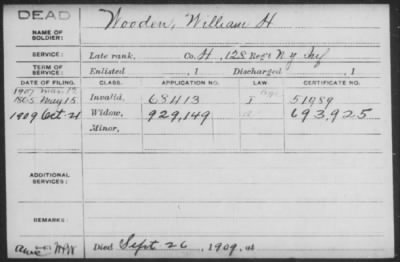 DEAD
NAME OF SOLDIER: Wooden, William H
SERVICE: Late rank, Co. H, 128 Reg't N.Y. Inf
TERM OF SERVICE: Enlisted , 1 Discharged , 1
DATE OF FILING. CLASS. APPLICATION NO. LAW. CERTIFICATE NO.
1907
1865 May 15 Invalid, 68413 I 51989
1909 Oct 21 Widow, 929,149 693,925
Minor,
ADDITIONAL SERVICES:
REMARKS:
Died Sept 26, 1909, at